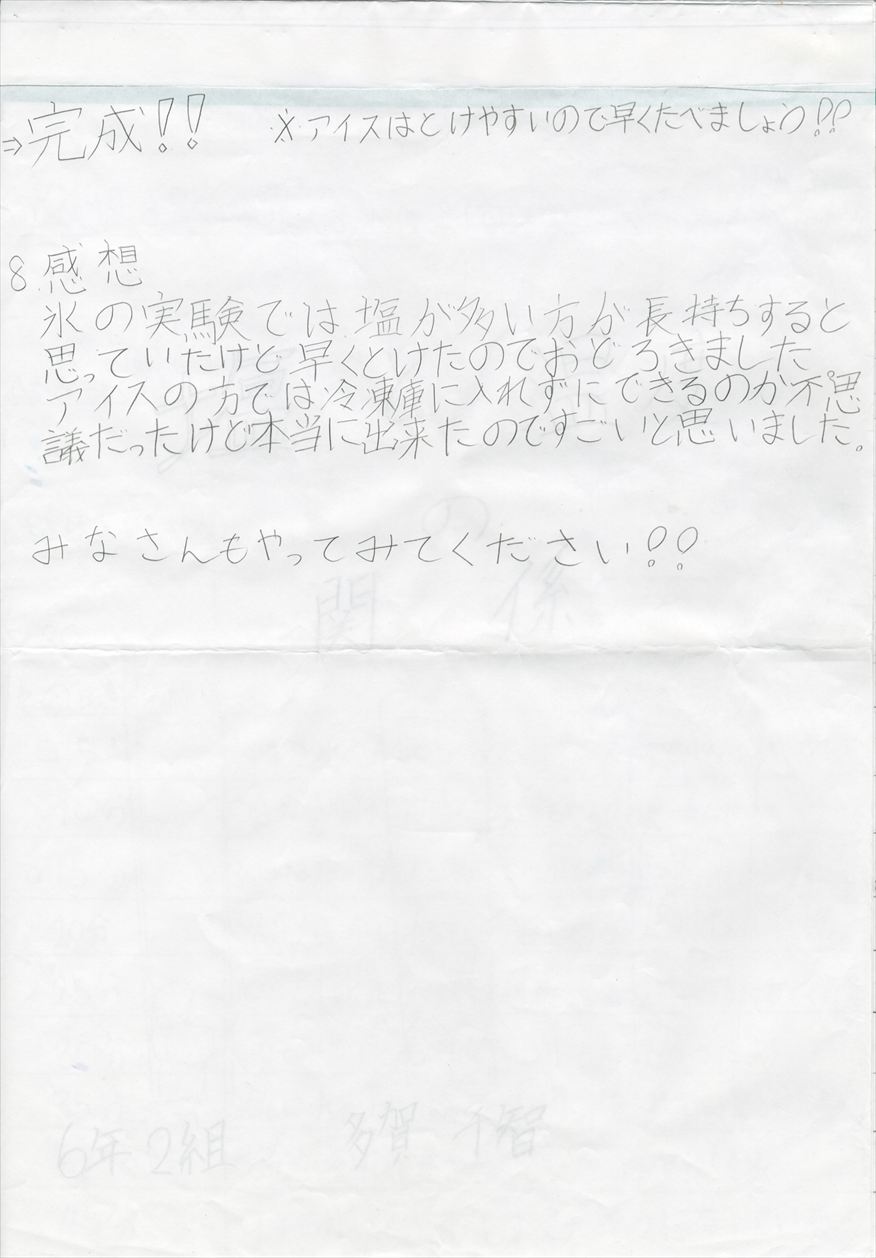 ⇒完成!! ※アイスはとけやすいので早くたべましょう!!
8.感想
氷の実験では塩が多い方が長持ちすると
思っていたけど早くとけたのでおどろきました
アイスの方では冷凍庫に入れずにできるのか不思
議だったけど本当に出来たのですごいと思いました。
みなさんもやってみてください!!
の
関係
6年2組 多賀千智